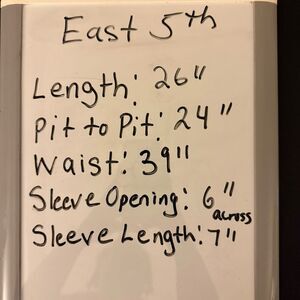 East 5th
Length: 26"
Pit to Pit: 24"
Waist: 39"
Sleeve Opening: 6"
across
Sleeve Length: 7"